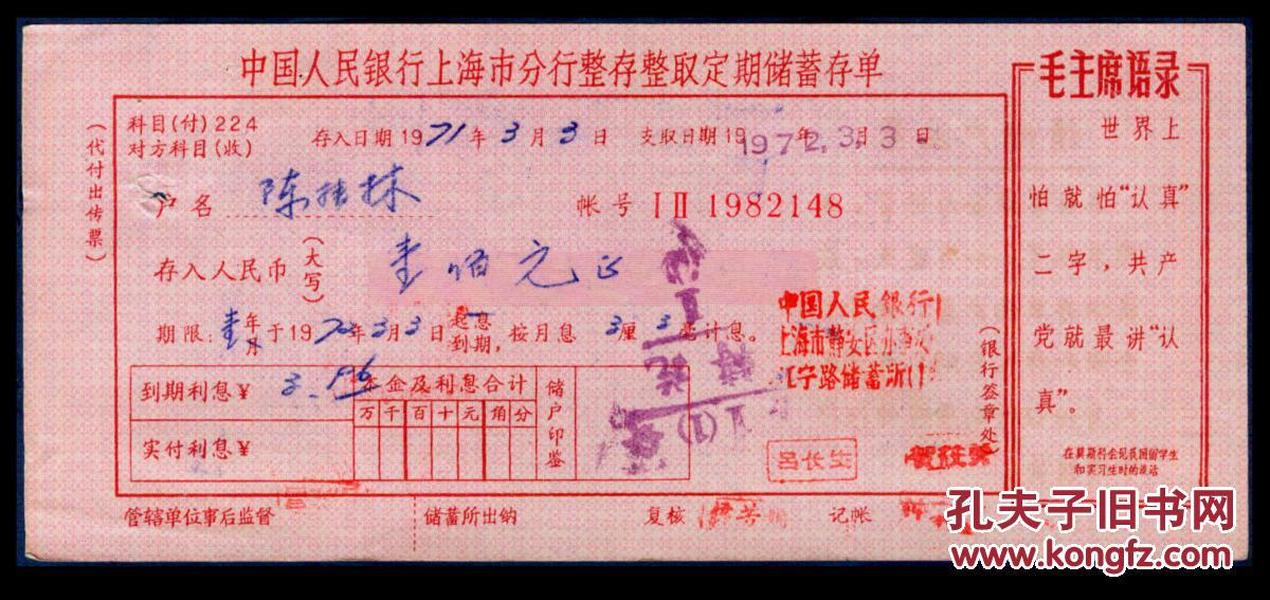 中国人民银行上海市分行整存整取定期储蓄存单
(代付出传票)
科目(付)224
对方科目(收)
存入日期1971年3月3日 支取日期19 1972.3.3 年 日
户名 陈 林 帐号 I II 1982148
存入人民币(大写) 壹佰元正
期限:壹年月于1972年3月3日起息到期,按月息3厘 计息。
到期利息¥ 3.
实付利息¥
本金及利息合计
万千百十元角分
储户印鉴
中国人民银行
上海市静安区办事处
江宁路储蓄所
(银行签章处)
吕长生
管辖单位事后监督 储蓄所出纳 复核 记帐
毛主席语录
世界上
怕就怕“认真”
二字,共产
党就最讲“认
真”。
在莫斯科会见我国留学生
和实习生时的谈话
孔夫子旧书网
www.kongfz.com